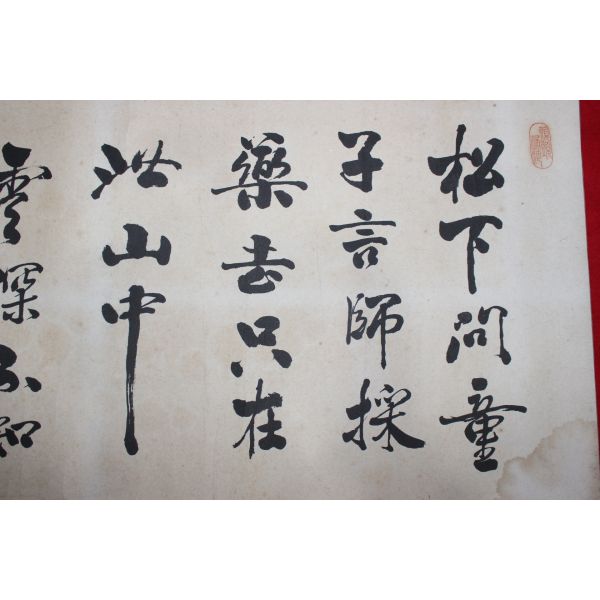 松下問童
子言師採
藥去只在
此山中
雲深不知